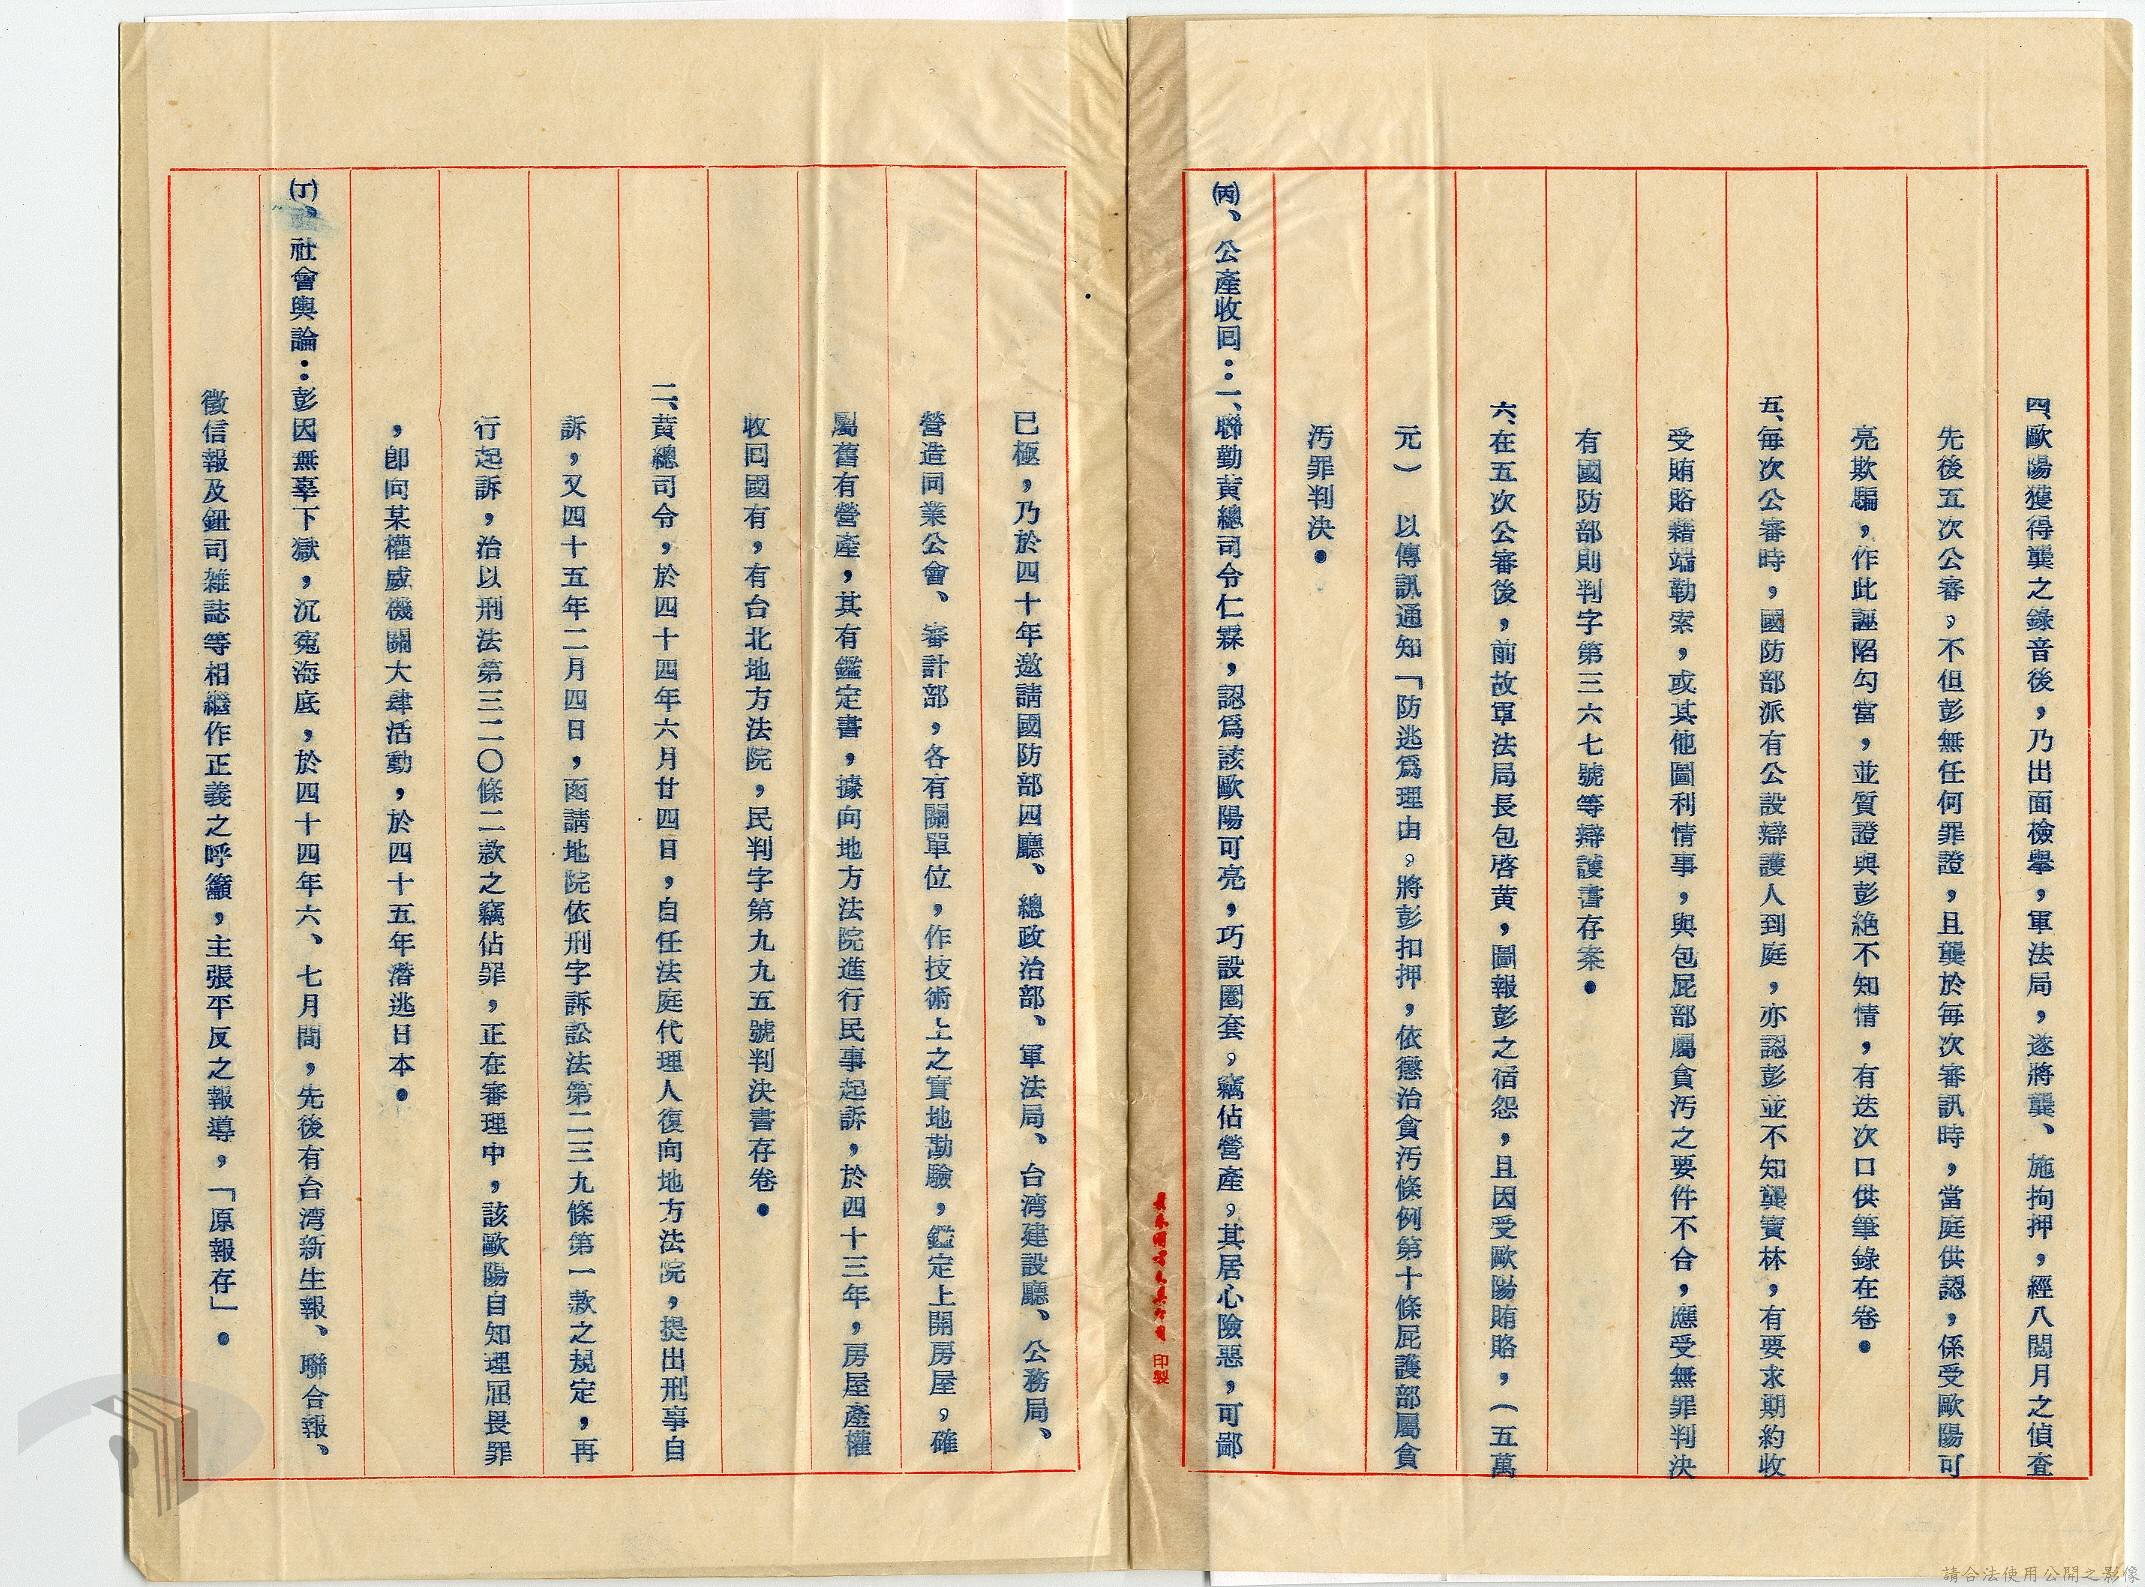 四、歐陽獲得龔之錄音後，乃出面檢舉，軍法局，遂將龔、施拘押，經八閱月之偵查
先後五次公審，不但彭無任何罪證，且龔於每次審訊時，當庭供認，係受歐陽可
亮欺騙，作此誣陷勾當，並質證與彭絕不知情，有迭次口供筆錄在卷。
五、每次公審時，國防部派有公設辯護人到庭，亦認彭並不知龔寶林，有要求期約收
受賄賂藉端勒索，或其他圖利情事，與包屁部屬貪污之要件不合，應受無罪判決
有國防部則判字第三六七號等辯護書存案。
六、在五次公審後，前故軍法局長包啓黃，圖報彭之宿怨，且因受歐陽賄賂，（五萬
元）　以傳訊通知「防逃爲理由，將彭扣押，依懲治貪污條例第十條屁護部屬貪
污罪判決。
㈣、公產收囘：一、聯勤黃總司令仁霖，認爲該歐陽可亮，巧設圈套，竊佔營產，其居心險惡，可鄙
已極，乃於四十年邀請國防部四廳、總政治部、軍法局、台灣建設廳、公務局、
營造同業公會、審計部，各有關單位，作技術上之實地勘驗，鑑定上開房屋，確
屬舊有營產，其有鑑定書，據向地方法院進行民事起訴，於四十三年，房屋產權
收囘國有，有台北地方法院，民判字第九九五號判決書存卷。
二、黃總司令，於四十四年六月廿四日，自任法庭代理人復向地方法院，提出刑事自
訴，又四十五年二月四日，函請地院依刑字訴訟法第二三九條第一款之規定，再
行起訴，治以刑法第三二〇條二款之竊佔罪，正在審理中，該歐陽自知理屈畏罪
，卽向某權威機關大肆活動，於四十五年潛逃日本。
㈩、社會輿論：彭因無辜下獄，沉寃海底，於四十四年六、七月間，先後有台湾新生報、聯合報、
徵信報及鈕司雜誌等相繼作正義之呼籲，主張平反之報導，「原報存」。
印製
請合法使用公開之影像